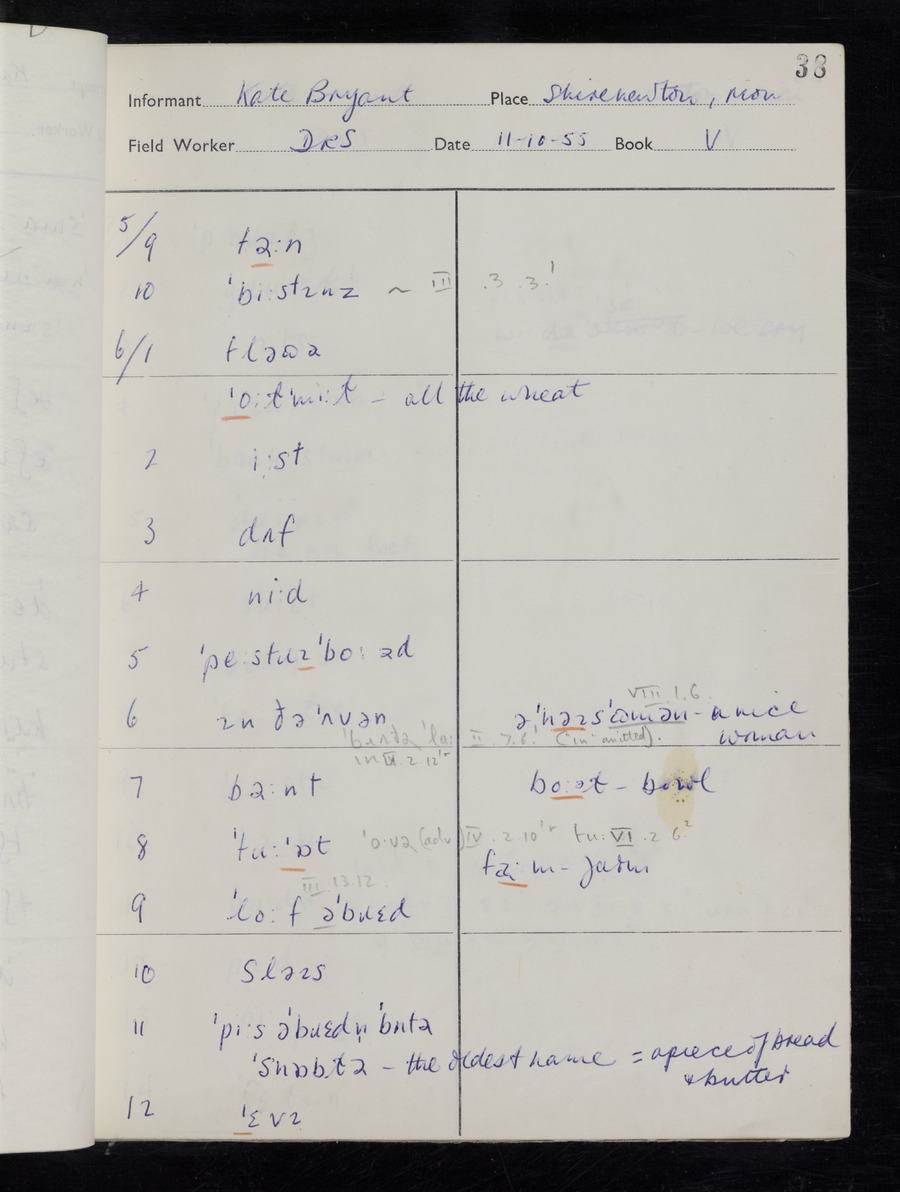 38
Informant Kate Bryant Place Shirenewton, Mon
Field Worker DRS Date 11-10-55 Book V
5/9 təːn
10 ˈbiːstɪnz ~ III .3 .3ˈ
6/1 fləʊə
ˈoːtˈmiːt – all the wheat
2 iːst
3 dʌf
4 niːd
5 ˈpeːstɹɪˈboːəd
6 ɪn ðə ˈʌvən əˈnəɪsˈʊmən – a nice woman
VIII.1.6.
II.7.6. (in omitted).
in IX.2.12
7 bəːnt boːət – bowl
8 ˈtuːˈɒt ˈoːvə (adv) IV.2.10 tuː VI.2.6²
faːm – farm
III.13.12.
9 ˈloːf əˈbɹɛd
10 sləɪs
11 ˈpiːs əˈbɹɛdn̩ ˈbʌtə
ˈsnɒbɫə – the oldest name = a piece of bread & butter
12 ˈɛvɪ